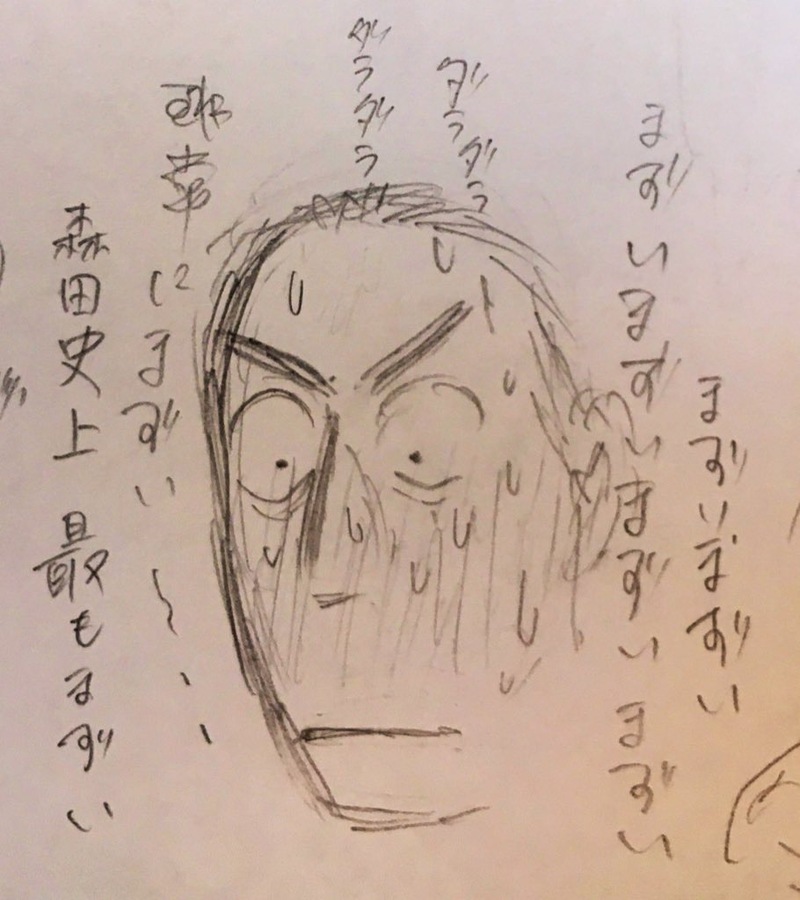 まずいまずい
まずいまずいまずい まずい
ダラダラ
ダラダラ
非常にまずい〜、、
森田史上 最もまずい